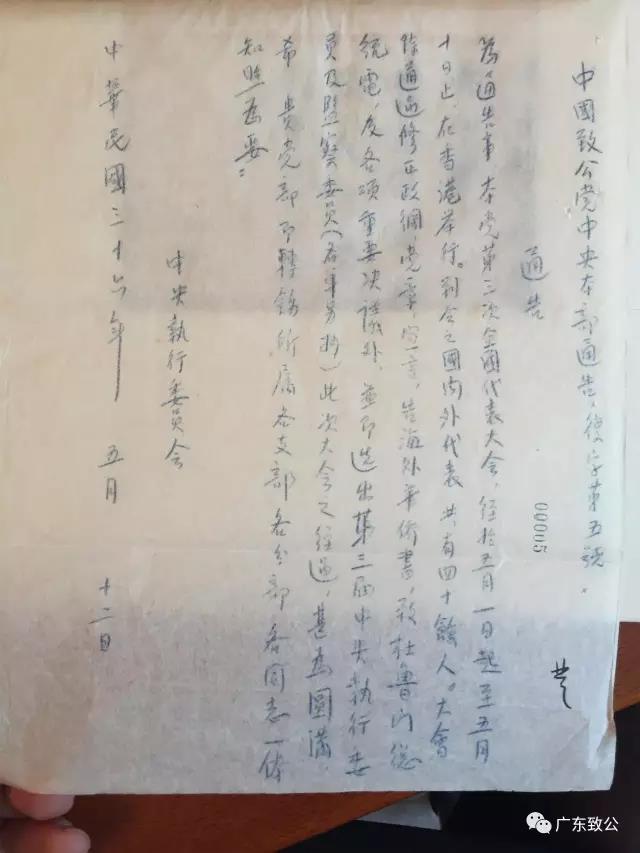 中國致公党中央本部通告，復字第五號．
通告
00005
為通告事 本党第三次全國代表大会，经於五月一日起至五月
十日止，在香港举行。到会之國内外代表 共有四十餘人。大會
除通過修正政綱，党章，宣言，告海外华侨書，致杜魯门总
统電，及各項重要决議外，並即选出第三届中央执行委
員及監察委員（名单另抄）此次大会之经過，甚為圓滿，
希 貴党部 即轉飭所属各支部各分部各同志一体
知照為要：
中央執行委員会
中華民國三十六年 五月 十二日
广东致公